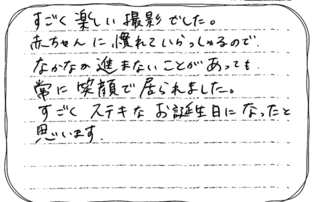 すごく楽しい撮影でした。
赤ちゃんに慣れていらっしゃるので、
なかなか進まないことがあっても
常に笑顔で居られました。
すごくステキなお誕生日になったと
思います。